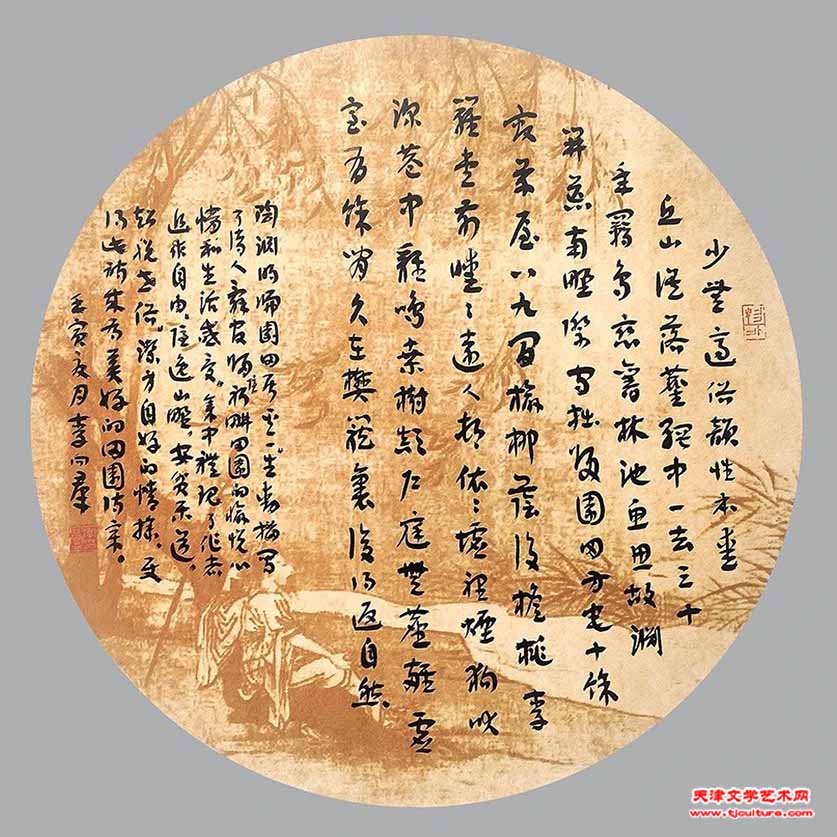 少無適俗韻性本愛
丘山誤落塵網中一去三十
年羈鳥戀舊林池魚思故淵
開荒南野際守拙歸園田方宅十餘
畝草屋八九間榆柳蔭後檐桃李
羅堂前曖々遠人村依々墟裡煙狗吠
深巷中雞鳴桑樹顛戶庭無塵雜虛
室有餘閒久在樊籠裏復得返自然
陶淵明歸園田居 一生動描寫
了詩人辭官歸隱躬耕田園的愉悅心
情和生活感受。集中體現了作者
追求自由，隱逸山野，安貧樂道，
超脫世俗，潔身自好的情操。更
此詩成為美好的田園詩章。
壬寅夏月李向群
天津文学艺术网
www.tjculture.com